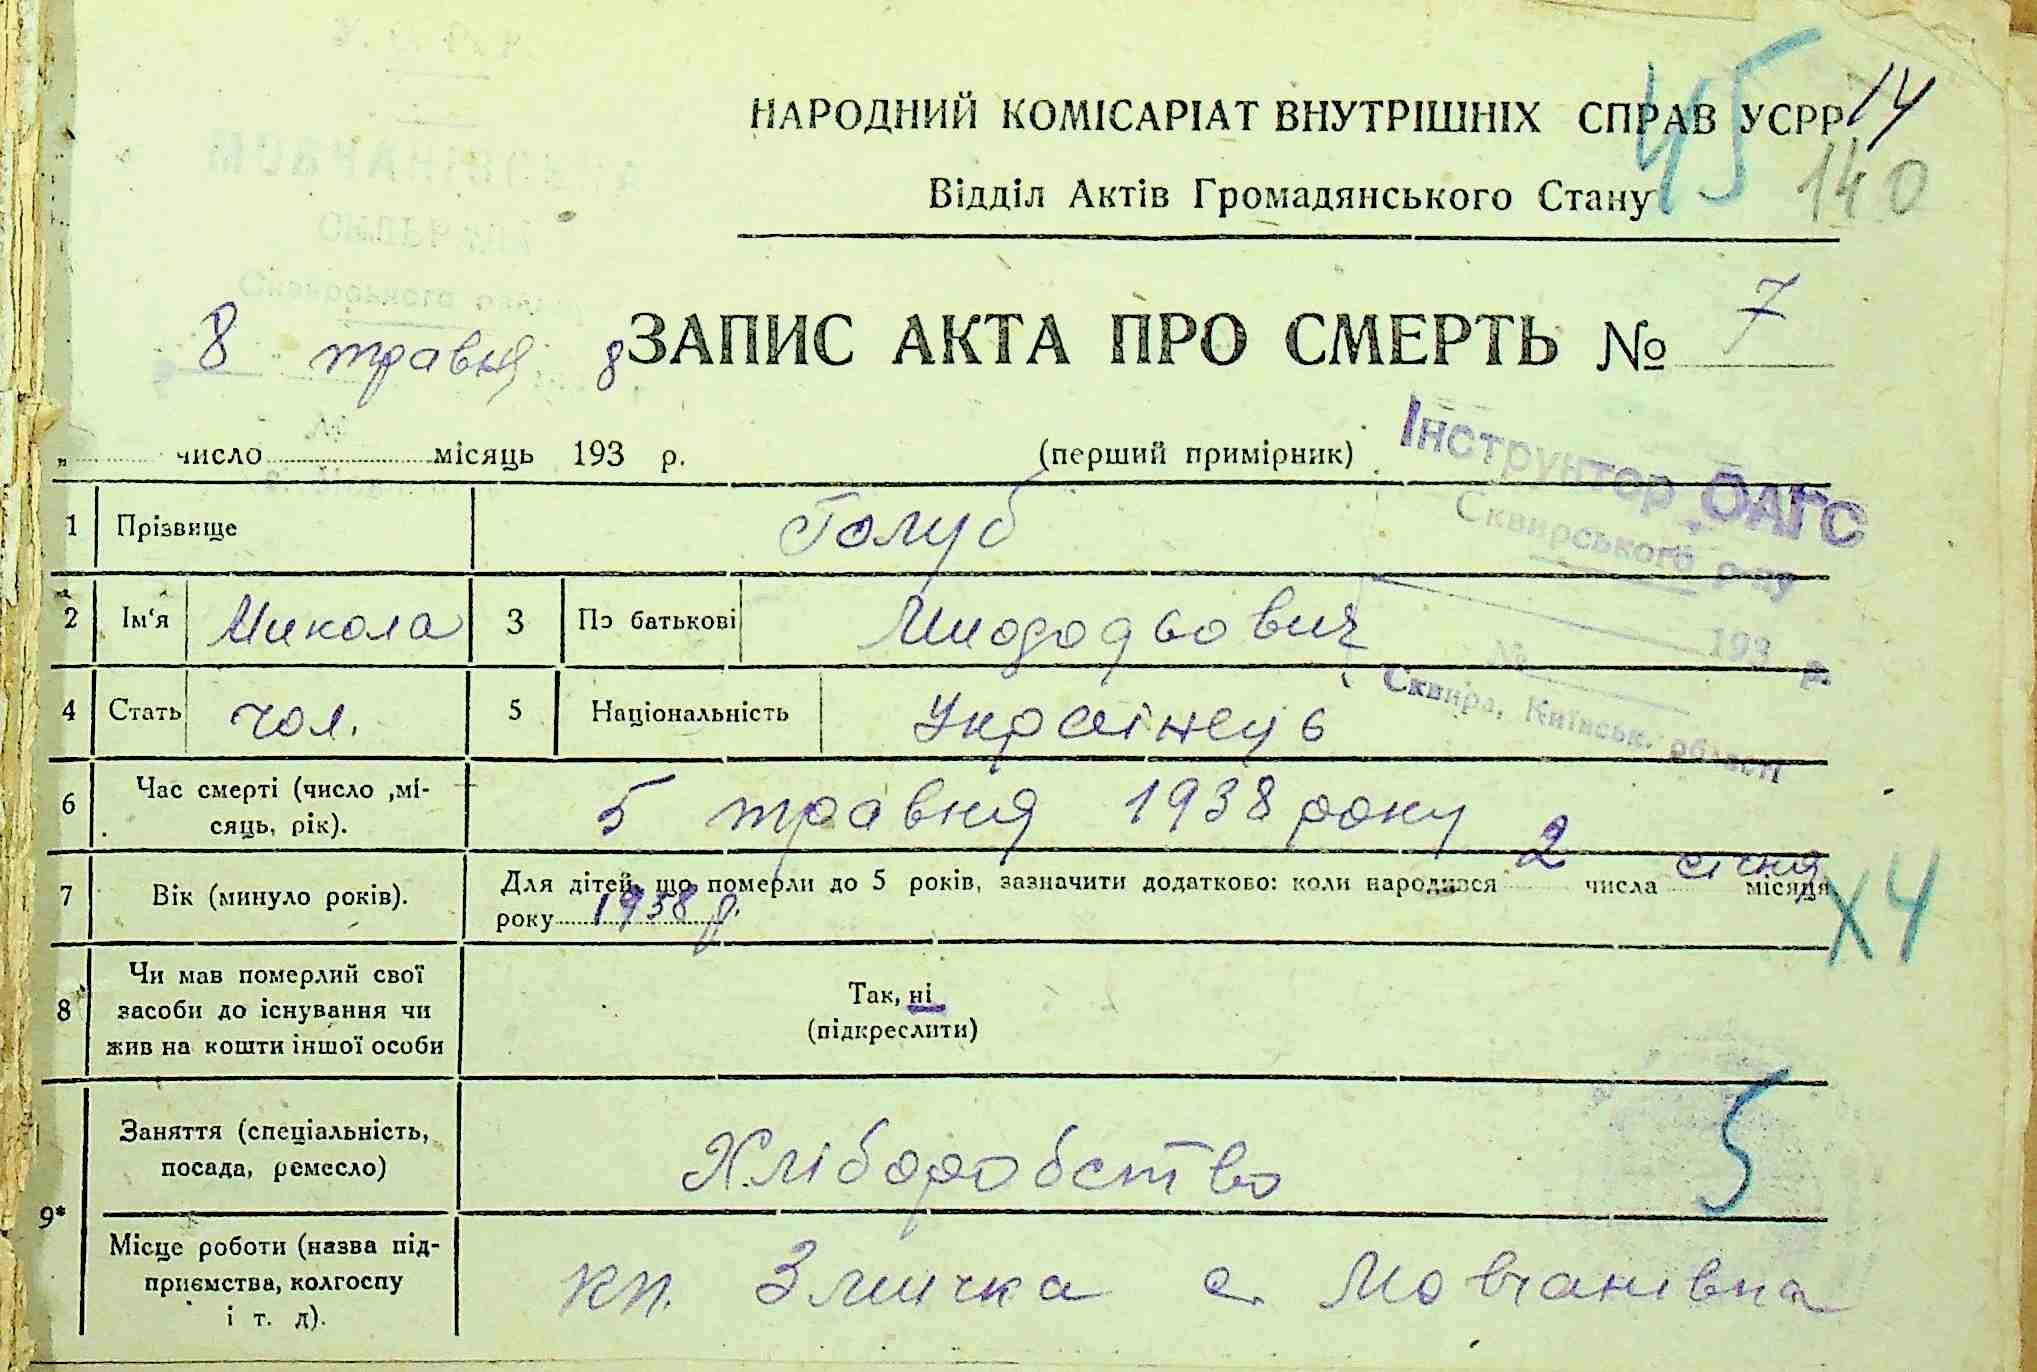 45 14
НАРОДНИЙ КОМІСАРІАТ ВНУТРІШНІХ СПРАВ УСРР
140
Відділ Актів Громадянського Стану
ЗАПИС АКТА ПРО СМЕРТЬ № 7
8 травня 8
„ число місяць 193 р. (перший примірник)
Інструктор ОАГС
Сквирського р-ну
193 р.
№
Сквира, Київськ. області
1 Прізвище Голуб
2 Ім'я Микола 3 По батькові
4 Стать чол. 5 Національність Українець
6 Час смерті (число ,мі-
сяць, рік). 5 травня 1938 року
7 Вік (минуло років). Для дітей, що померли до 5 років, зазначити додатково: коли народився 2 числа січня місяця
року 1938 р.
Х4
8 Чи мав померлий свої
засоби до існування чи
жив на кошти іншої особи
Так, ні
(підкреслити)
9* Заняття (спеціальність,
посада, ремесло) Хліборобство
5
Місце роботи (назва під-
приємства, колгоспу
і т. д). кп. Змичка с. Мовчанівка